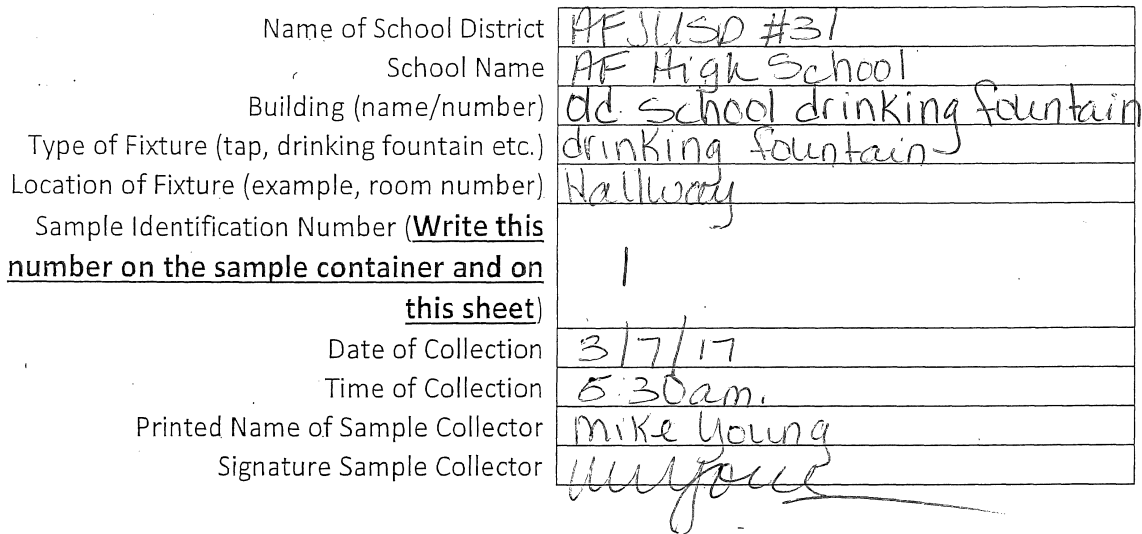 Name of School District AFJUSD #31
School Name AF High School
Building (name/number) old school drinking fountain
Type of Fixture (tap, drinking fountain etc.) drinking fountain
Location of Fixture (example, room number) Hallway
Sample Identification Number (Write this
number on the sample container and on 1
this sheet)
Date of Collection 3/7/17
Time of Collection 5:30am.
Printed Name of Sample Collector Mike Young
Signature Sample Collector